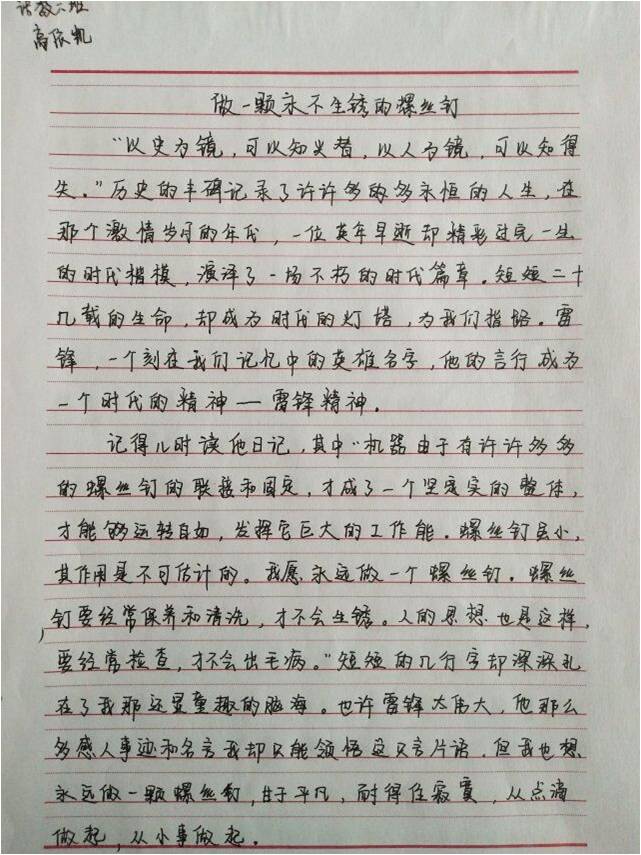 语教六班
高依凯
做一颗永不生锈的螺丝钉
“以史为镜,可以知兴替,以人为镜,可以知得
失。”历史的丰碑记录了许许多多永恒的人生,在
那个激情岁月的年代,一位英年早逝却精彩过完一生
的时代楷模,演译了一场不朽的时代篇章。短短二十
几载的生命,却成为时代的灯塔,为我们指路。雷
锋,一个刻在我们记忆中的英雄名字,他的言行成为
一个时代的精神——雷锋精神。
记得儿时读他日记,其中“机器由于有许许多多
的螺丝钉的联接和固定,才成了一个坚实的整体,
才能够运转自如,发挥它巨大的工作能。螺丝钉虽小,
其作用是不可估计的。我愿永远做一个螺丝钉。螺丝
钉要经常保养和清洗,才不会生锈。人的思想也是这样,
要经常检查,才不会出毛病。”短短的几行字却深深扎
在了我那还显童趣的脑海。也许雷锋太伟大,他那么
多感人事迹和名言我却只能领悟这只言片语。但我也想
永远做一颗螺丝钉,甘于平凡,耐得住寂寞,从点滴
做起,从小事做起。